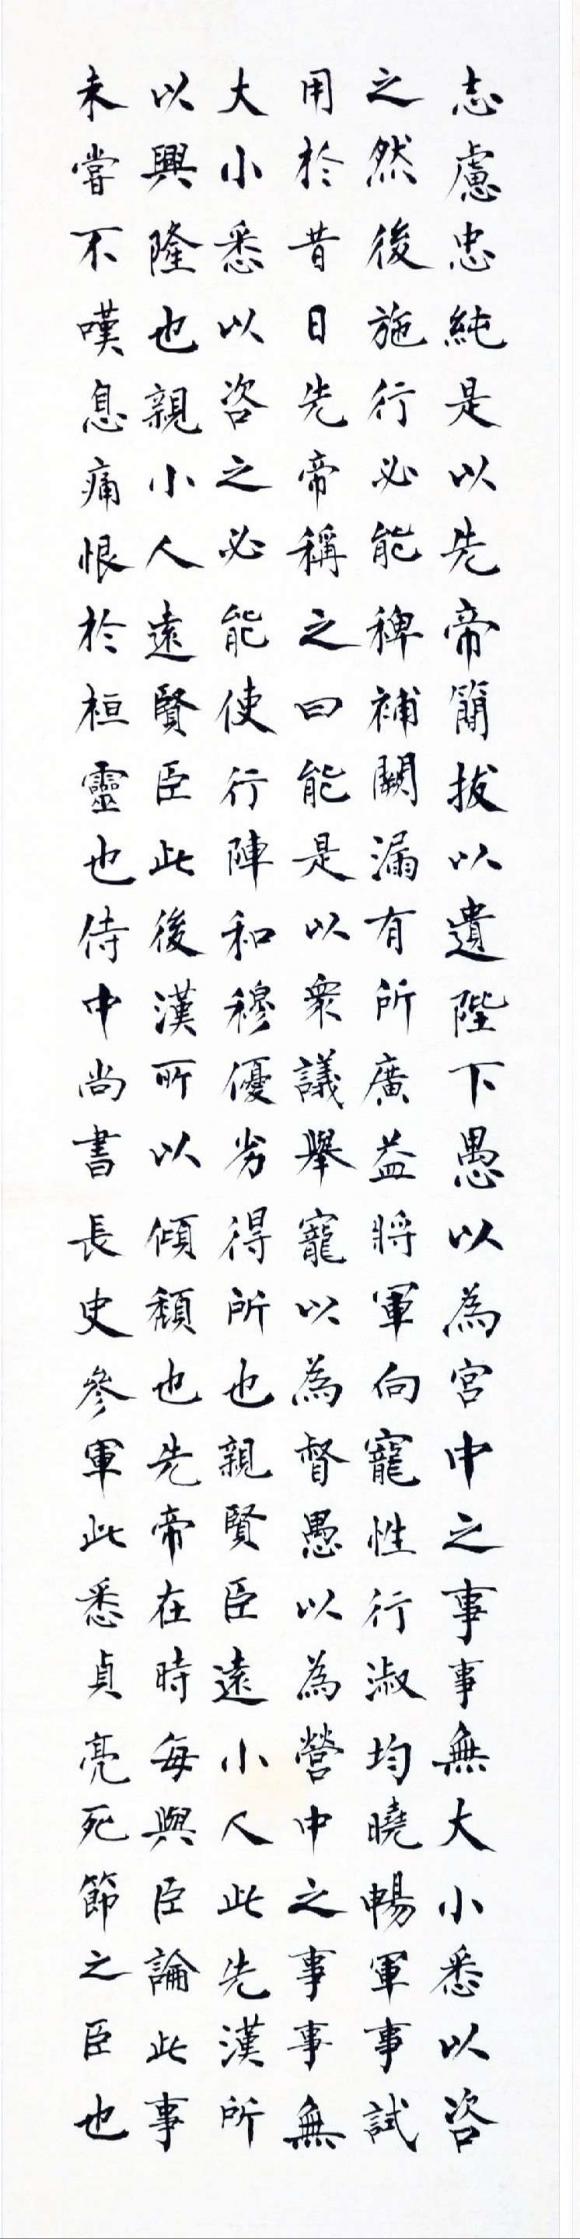 志慮忠純是以先帝簡拔以遺陛下愚以為宮中之事事無大小悉以咨
之然後施行必能稗補闕漏有所廣益將軍向寵性行淑均曉暢軍事試
用於昔日先帝稱之曰能是以衆議舉寵以為督愚以為營中之事事無
大小悉以咨之必能使行陣和穆優劣得所也親賢臣遠小人此先漢所
以興隆也親小人遠賢臣此後漢所以傾頹也先帝在時每與臣論此事
未嘗不嘆息痛恨於桓靈也侍中尚書長史參軍此悉貞亮死節之臣也